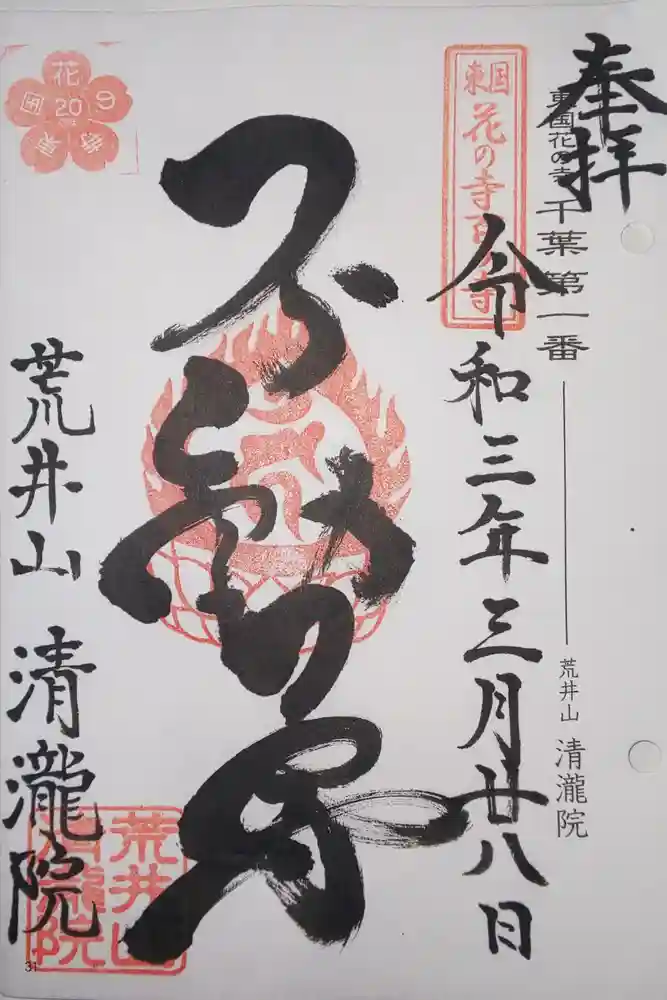 奉拝
東国花の寺 千葉第一番
荒井山 清瀧院
東国
花の寺百ヶ寺
令和三年三月廿八日
不動明
荒井山 清瀧院
荒井山
清瀧院
花
20
31